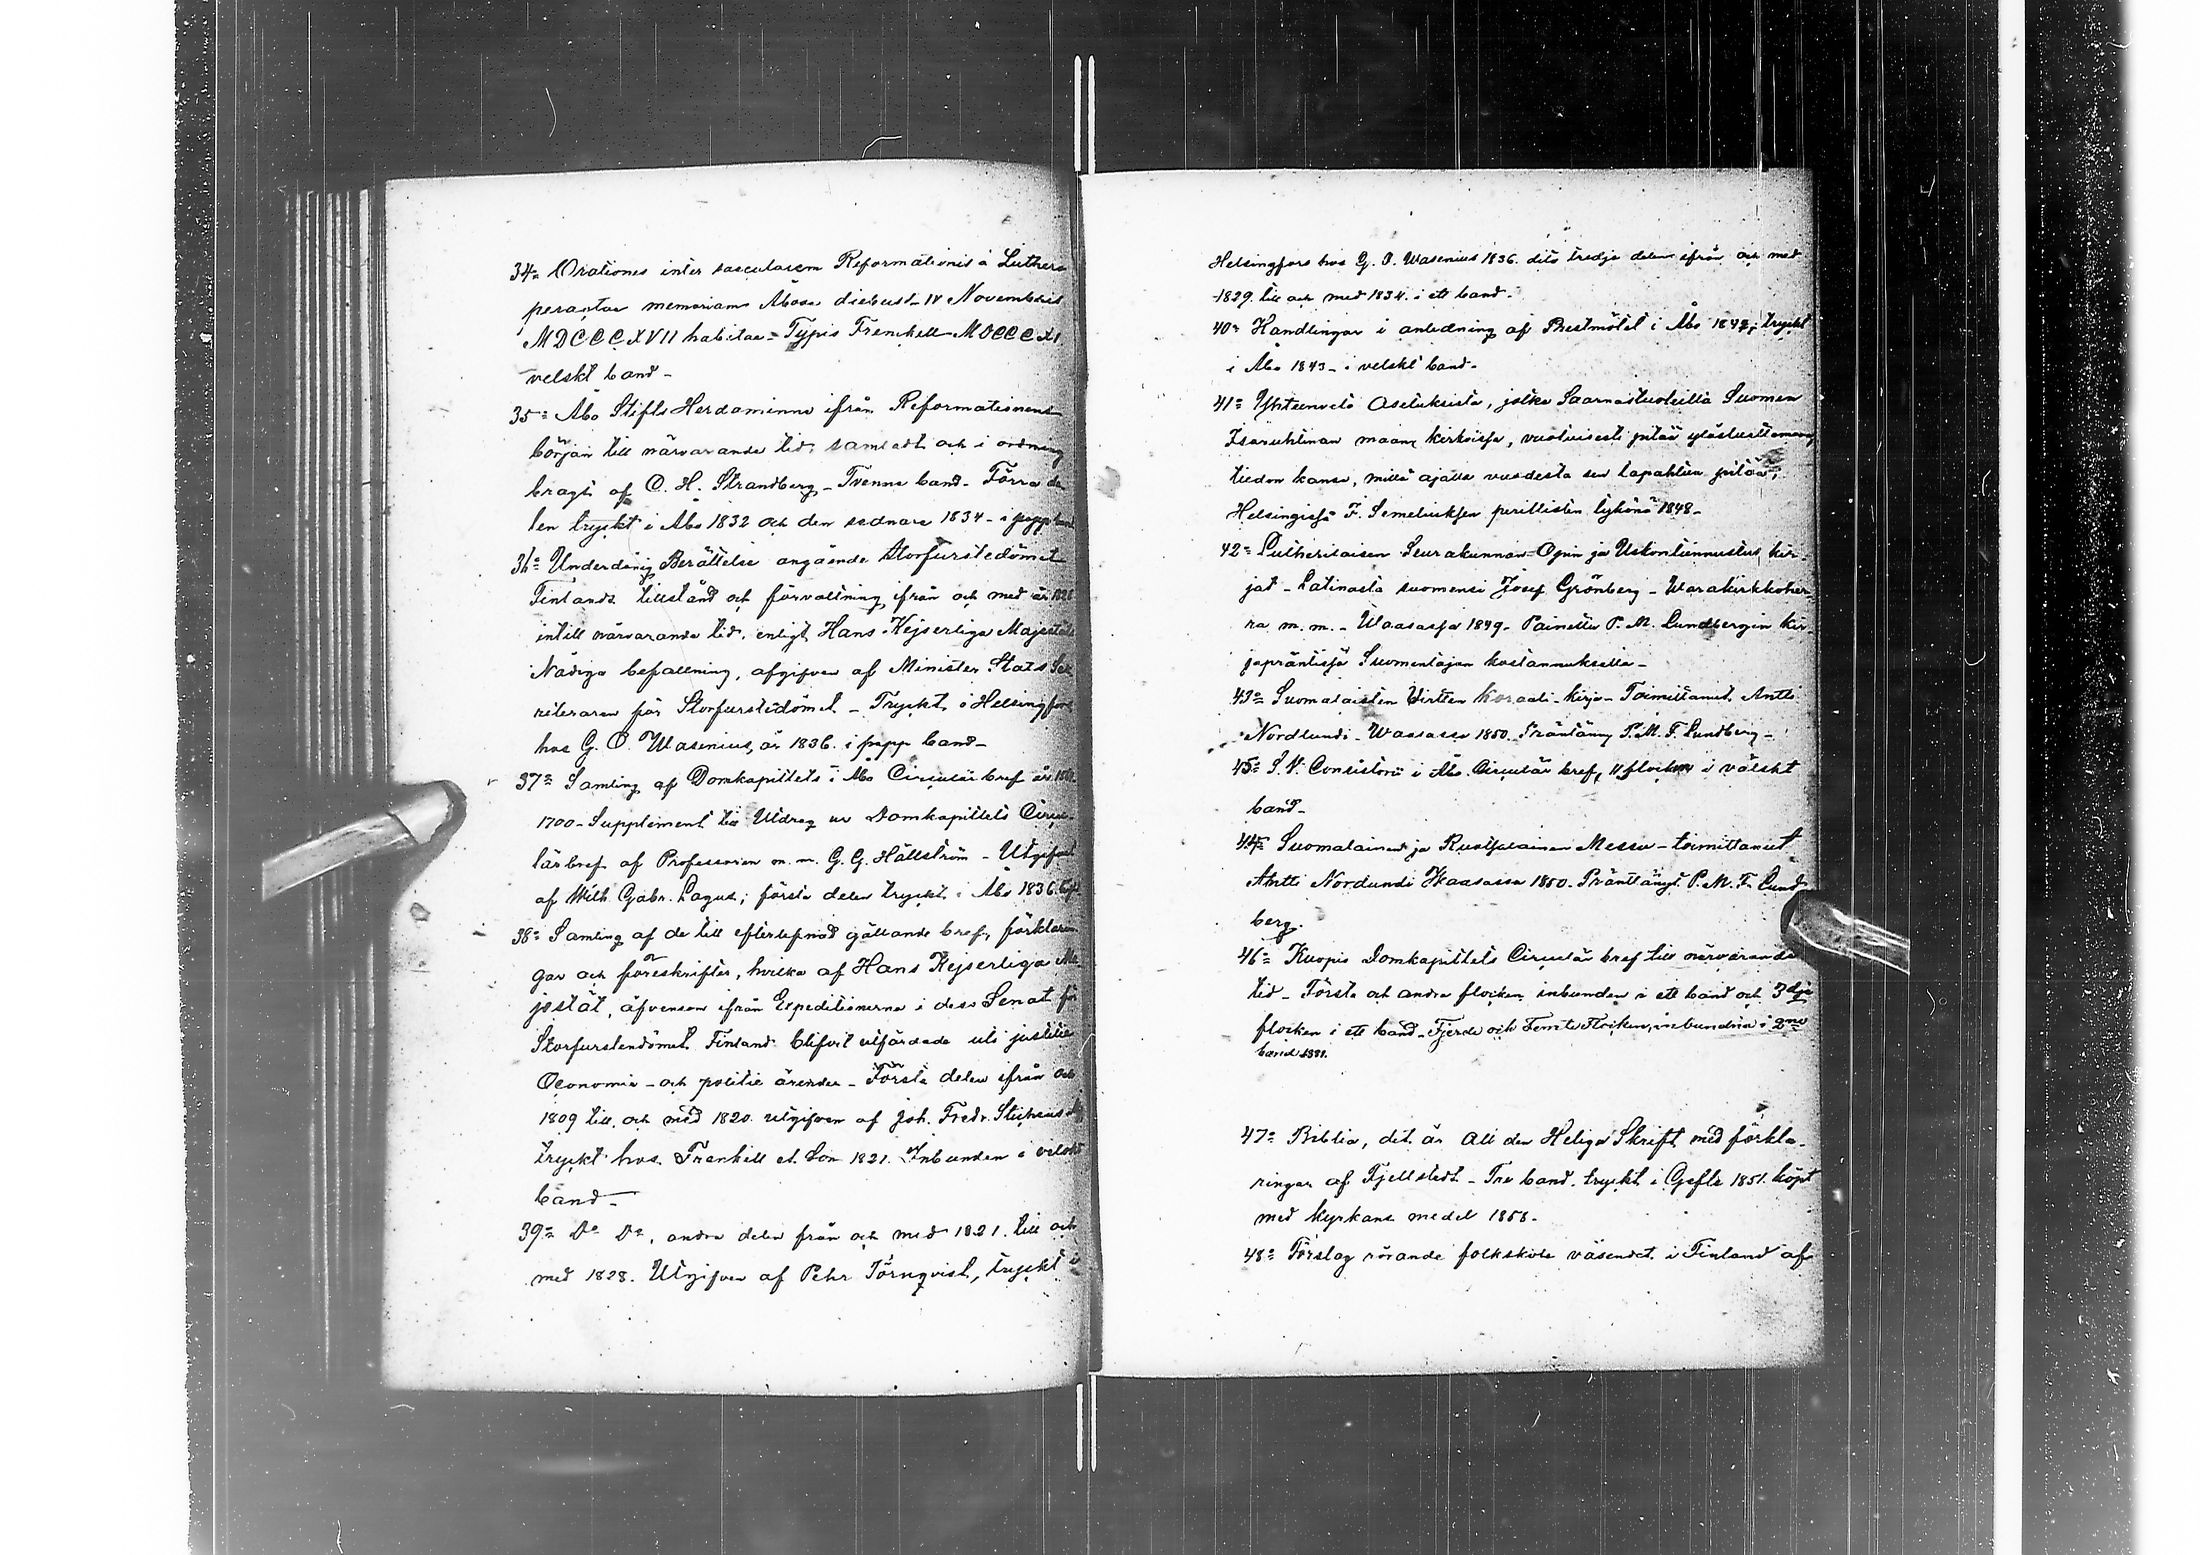 34= Orationes inter saecularem Reformationis a Luthero
peractae memoriam Åboae diebus IV Novembris
MDCCCXVII habitae = Typis Frenckell MDCCCXI
velskt band -
35= Åbo Stifts Herdaminne ifrån Reformationens
början till närvarande tid, samladt och i ordning
bragt af C. H. Strandberg - Tvenne band - Förra de
len tryckt i Åbo 1832 och den sednare 1834 - i papp band
36= Underdånig Berättelse angående Storfurstedömet
Finlands tillstånd och förvaltning ifrån och med år 1826
intill närvarande tid, enligt Hans Kejserliga Majestäts
Nådiga befallning, afgifven af Minister Stats Sek
reteraren för Storfurstedömet - Tryckt i Helsingfors
hos G. O. Wasenius, år 1836. i papp band -
37= Samling af Domkapitlets i Åbo Circulär bref år
1700 - Supplement till Utdrag ur Domkapitlets Circu-
lär bref af Professoren m. m. G. G. Hällström - Utgifvet
af Wilh. Gabr. Lagus; första delen tryckt i Åbo 1836.
38= Samling af de till efterlefnad gällande bref, förklarin
gar och föreskrifter, hvilka af Hans Kejserliga Ma
jestät, äfvensom ifrån Expeditionerna i dess Senat för
Storfurstendömet Finland blifvit utfärdade uti justitie
Oeconomie - och politie ärender - Första delen ifrån och
1809 till och med 1820. utgifven af Joh. Fredr. Stichæus
tryckt hos Frenkell et Son 1821. Inbunden i velskt
band -
39= Do Do, andra delen från och med 1821. till och
med 1828. Utgifven af Pehr Törnqvist, tryckt i
Helsingfors hos G. O. Wasenius 1836. dito tredje delen ifrån och med
1829. till och med 1834. i ett band -
40= Handlingar i anledning af Prestmötet i Åbo 1842, tryckt
i Åbo 1843 - i velskt band -
41= Yhteenveto Asetuksista, jotka Saarnastuoleilla Suomen
Isoruhtinan maan kirkoissa, vuotuisesti pitää ylösluettaman
tiedon kansa, millä ajalla vuodesta sen tapahtua pitää;
Helsingissä F. Semeliuksen perillisten tykönä 1848 -
42= Lutherilaisen Seurakunnan Opin ja Uskontunnustus kir-
jat - Latinasta suomensi Josef Grönberg - Warakirkkoher-
ra m. m. - Waasassa 1849 - Painettu P. M. Lundbergin kir-
japräntissä Suomentajan kustannuksella -
43= Suomalaisten Wirtten Koraali - kirja - Toimittanut Antti
Nordlundi - Waasassa 1850. Präntänny P. M. F. Lundberg -
45= S. V. Consistorii i Åbo Circulär bref, IV flocken i välskt
band -
44= Suomalainen ja Ruotsalainen Messu - toimittanut
Antti Nordundi Waasassa 1850. Präntänyt P. M. F. Lund
berg.
46= Kuopio Domkapitlets Circulär bref till närvarande
tid - Första och andra flocken inbunden i ett band och 3dje
flocken i ett band - Fjerde och Femte Flocken, inbundna i 2ne
band 1881.
47= Biblia, det är All den Heliga Skrift med förkla-
ringar af Fjellstedt - Tre band. tryckt i Gefle 1851. köpt
med kyrkans medel 1858.
48= Förslag rörande folkskole väsendet i Finland af